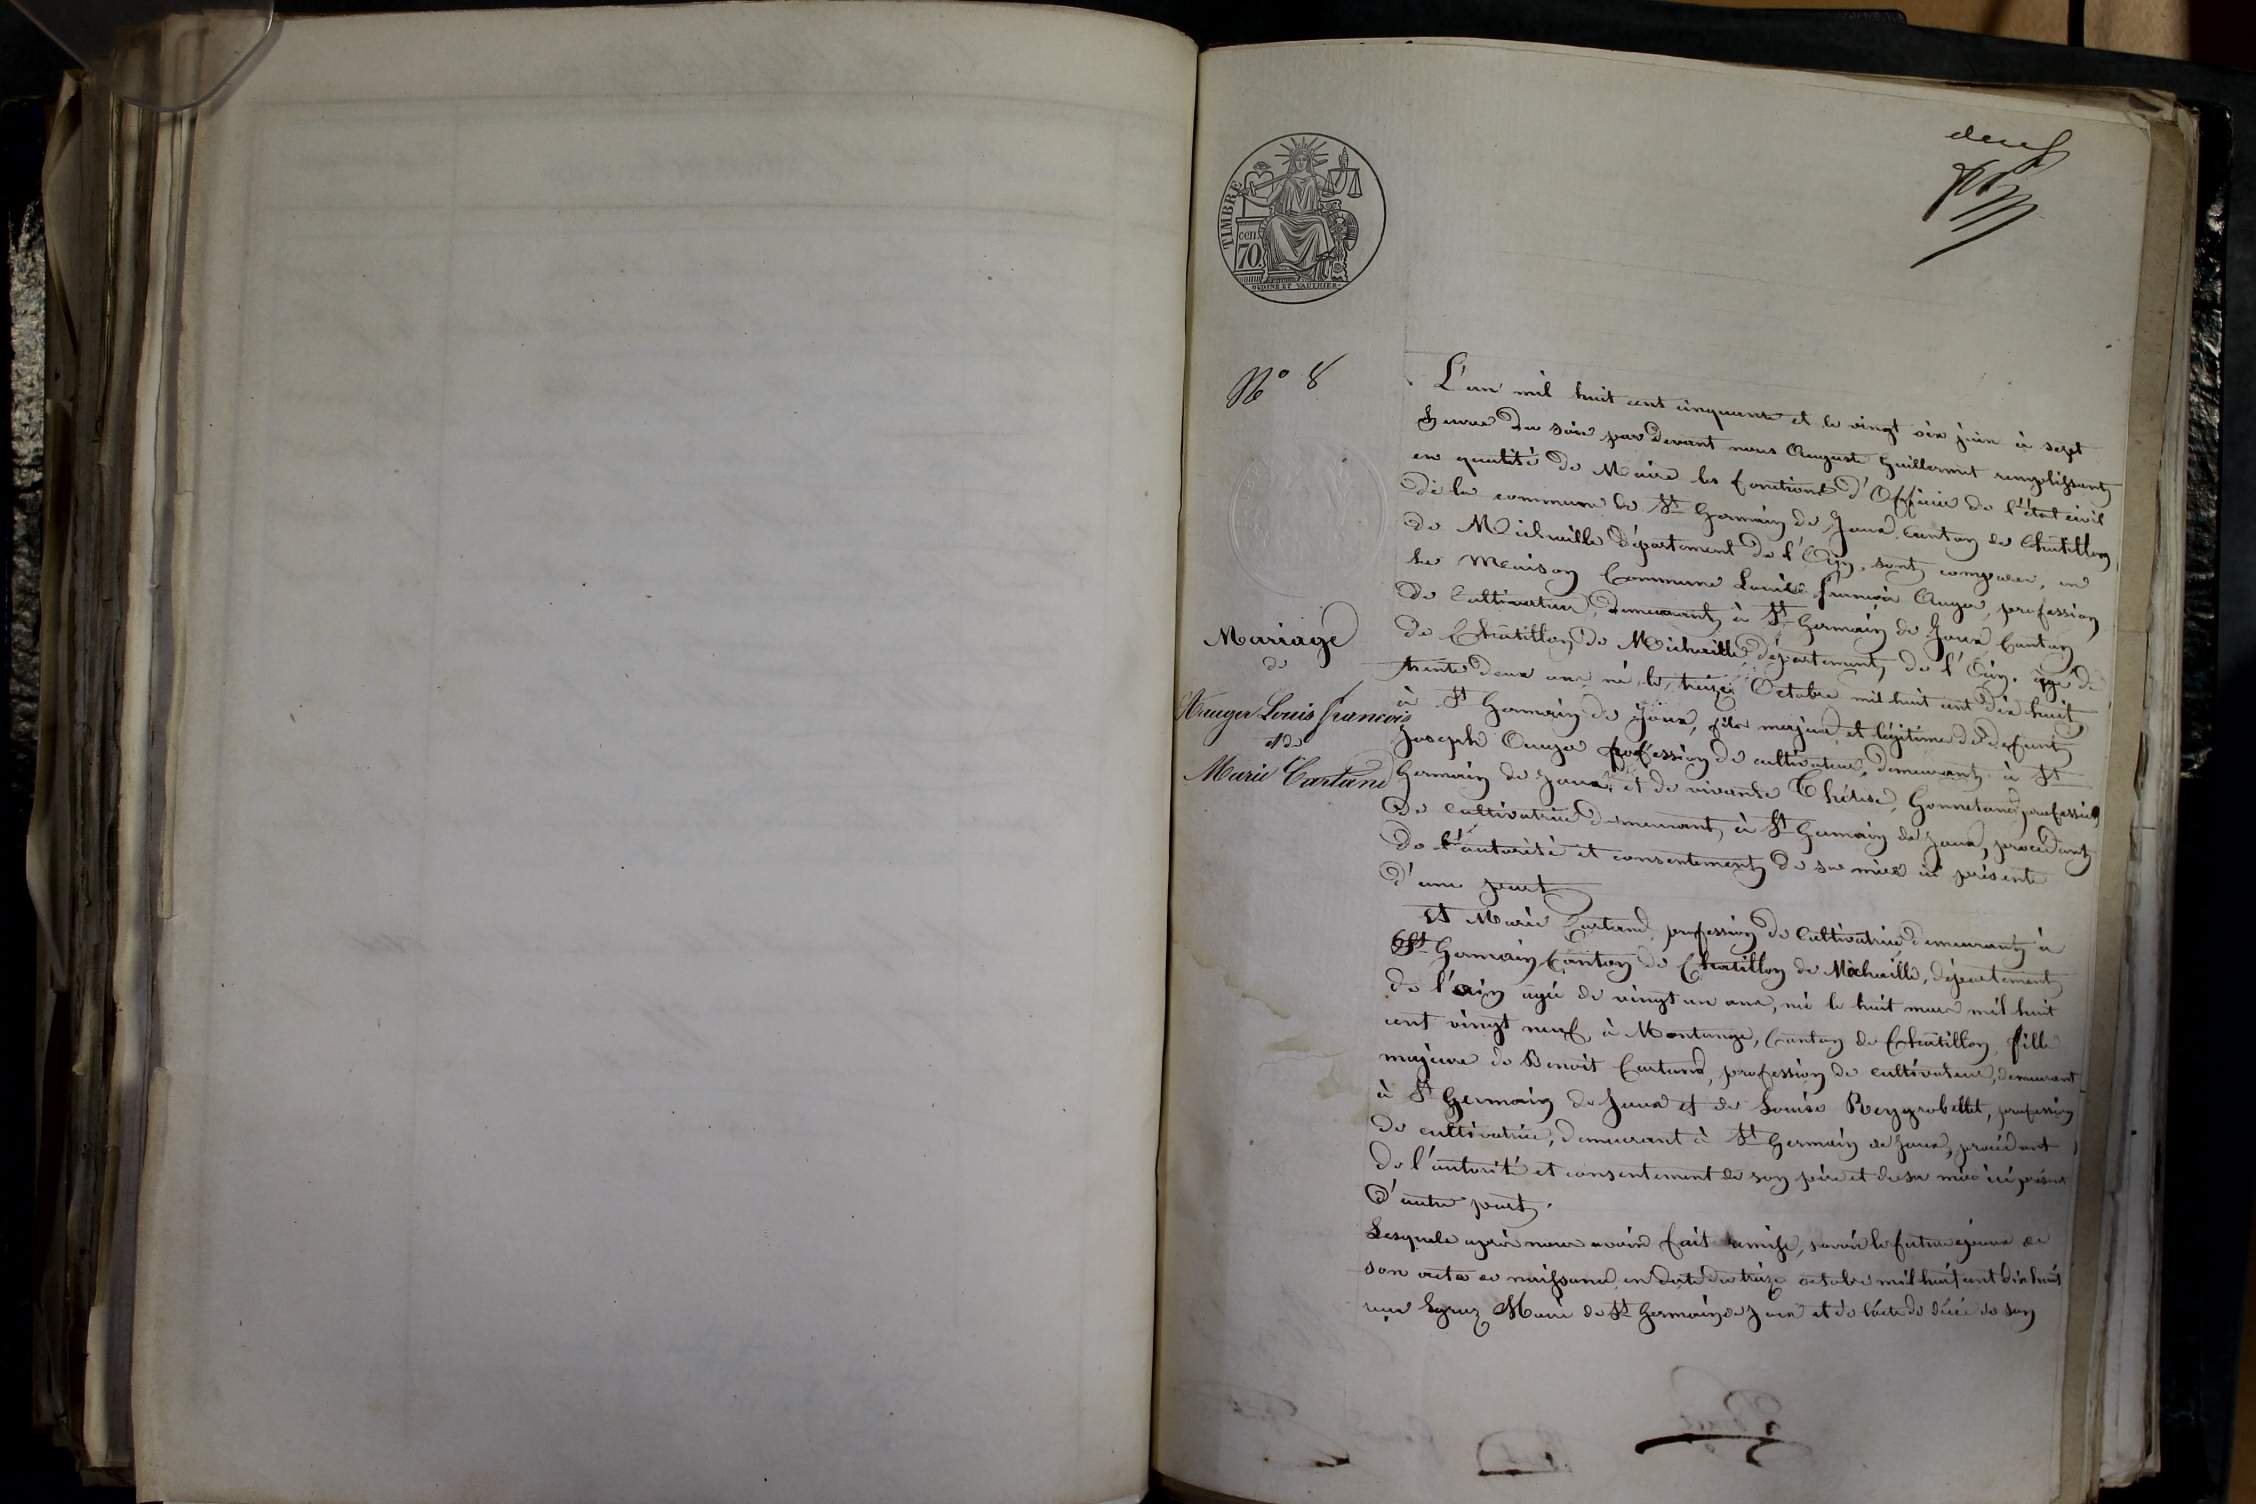 deux
TIMBRE
cen.
70
OUDINÉ ET VAUTHIER
N° 8
Mariage
de
Auger Louis francois
et de
Marie Cartand
L'an mil huit cent cinquante et le vingt six juin à sept
heures du soir par devant nous Auguste Guillermet remplissant
en qualité de Maire les fonctions d'Officier de l'état civil
de la commune de St Germain de Joux, Canton de Chatillon
de Michaille département de l'Ain, sont comparu, en
la Maison Commune Louis françois Auger, profession
de Cultivateur, demeurant à St Germain de Joux Canton
de Châtillon de Michaille département de l'Ain, âgé de
trente deux ans né le treize Octobre mil huit cent dix huit
à St Germain de Joux, fils majeur et légitime de defunt
Joseph Auger profession de cultivateur, demeurant à St
Germain de Joux, et de vivante Thérèse, Gonnetand profession
de Cultivatrice demeurant à St Germain de Joux, procédant
de l'autorité et consentement de sa mère ici présente
d'une part
Et Marie Cartand profession de Cultivatrice demeurant à
St Germain Canton de Chatillon de Michaille, département
de l'ain agée de vingt un ans, née le huit mars mil huit
cent vingt neuf, à Montange, Canton de Chatillon, fille
majeure de Benoit Cartand, profession de cultivateur, demeurant
à St Germain de Joux et de Louise Reygrobellet, profession
de cultivatrice, demeurant à St Germain de Joux, procédant
de l'autorité et consentement de son père et de sa mère ici présents
d'autre part.
Lesquels après nous avoir fait remise, savoir le futur époux de
son acte de naissance en date du treize octobre mil huit cent dix huit
Maire de St Germain de Joux et de l'acte de décès de son